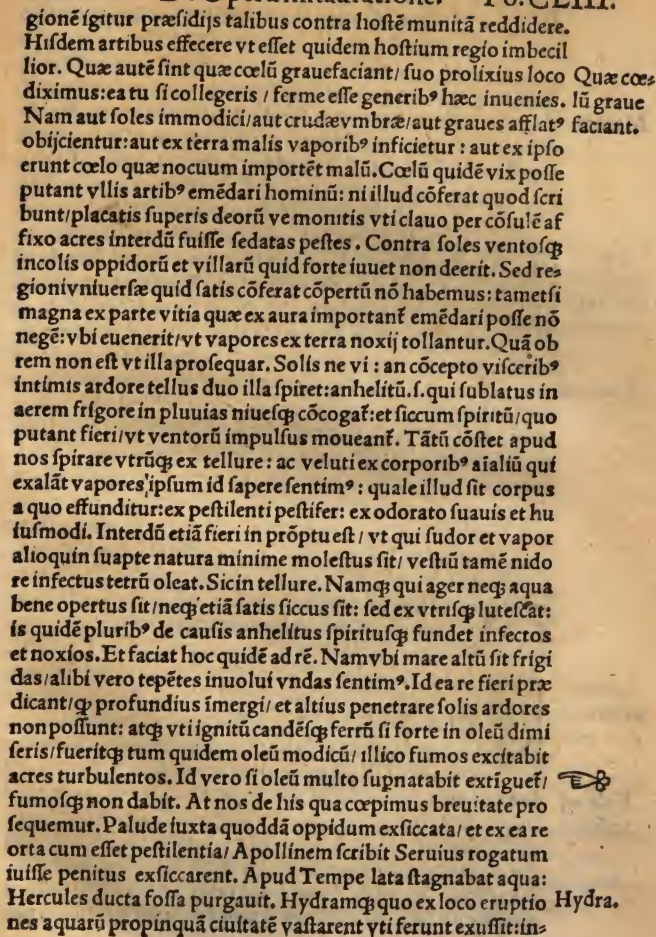 Fo. CLIII.
gionē igitur præsidijs talibus contra hostē munitā reddidere.
Hisdem artibus effecere vt esset quidem hostium regio imbecil
lior. Quæ autē sint quæ cœlū grauefaciant/ suo prolixius loco Quæ cœ⸗
diximus:ea tu si collegeris / ferme esse generibꝰ hæc inuenies. lū graue
Nam aut soles immodici/aut crudæ vmbræ/aut graues afflatꝰ faciant.
obijcientur:aut ex terra malis vaporibꝰ inficietur : aut ex ipso
erunt cœlo quæ nocuum importēt malū.Cœlū quidē vix posse
putant vllis artibꝰ emēdari hominū: ni illud cōferat quod scri
bunt/placatis superis deorū ve monitis vti clauo per cōsulē af
fixo acres interdū fuisse sedatas pestes . Contra soles ventosqꝫ
incolis oppidorū et villarū quid forte iuuet non deerit. Sed re⸗
gioni vniuersæ quid satis cōferat cōpertū nō habemus: tametsi
magna ex parte vitia quæ ex aura important᷑ emēdari posse nō
negē:vbi euenerit/vt vapores ex terra noxij tollantur.Quā ob
rem non est vt illa prosequar. Solis ne vi : an cōcepto visceribꝰ
intimis ardore tellus duo illa spiret:anhelitū.s.qui sublatus in
aerem frigore in pluuias niuesqꝫ cōcogat᷑:et siccum spiritū/quo
putant fieri/vt ventorū impulsus moueant᷑. Tātū cōstet apud
nos spirare vtrūqꝫ ex tellure : ac veluti ex corporibꝰ aīaliū qui
exalāt vapores ipsum id sapere sentimꝰ : quale illud sit corpus
a quo effunditur:ex pestilenti pestifer: ex odorato suauis et hu
iusmodi. Interdū etiā fieri in prōptu est / vt qui sudor et vapor
alioquin suapte natura minime molestus sit/ vestiū tamē nido
re infectus tetrū oleat.Sic in tellure. Namqꝫ qui ager neqꝫ aqua
bene opertus sit/neqꝫ etiā satis siccus sit: sed ex vtrisqꝫ lutescat:
is quidē pluribꝰ de causis anhelitus spiritusqꝫ fundet infectos
et noxios.Et faciat hoc quidē ad rē. Nam vbi mare altū sit frigi
das/alibi vero tepētes inuolui vndas sentimꝰ.Id ea re fieri præ
dicant/ꝙ profundius īmergi/et altius penetrare solis ardores
non possunt: atqꝫ vti ignitū candēsqꝫ ferrū si forte in oleū dimi
seris/fueritqꝫ tum quidem oleū modicū/ illico fumos excitabit
acres turbulentos. Id vero si oleū multo supnatabit extīguet᷑/
fumosqꝫ non dabit. At nos de his qua cœpimus breuitate pro
sequemur.Palude iuxta quoddā oppidum exsiccata/ et ex ea re
orta cum esset pestilentia/ Apollinem scribit Seruius rogatum
iuisse penitus exsiccarent. Apud Tempe lata stagnabat aqua:
Hercules ducta fossa purgauit. Hydramqꝫ quo ex loco eruptio Hydra.
nes aquarū propinquā ciuitatē vastarent vti ferunt exussit:in⸗